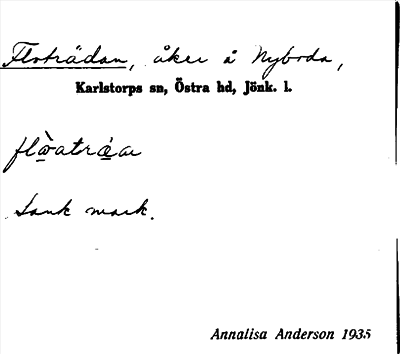 Floträdan, åker å Nyboda,
Karlstorps sn, Östra hd, Jönk. l.
flò̲aträ̲́a
Sank mark.
Annalisa Anderson 1935